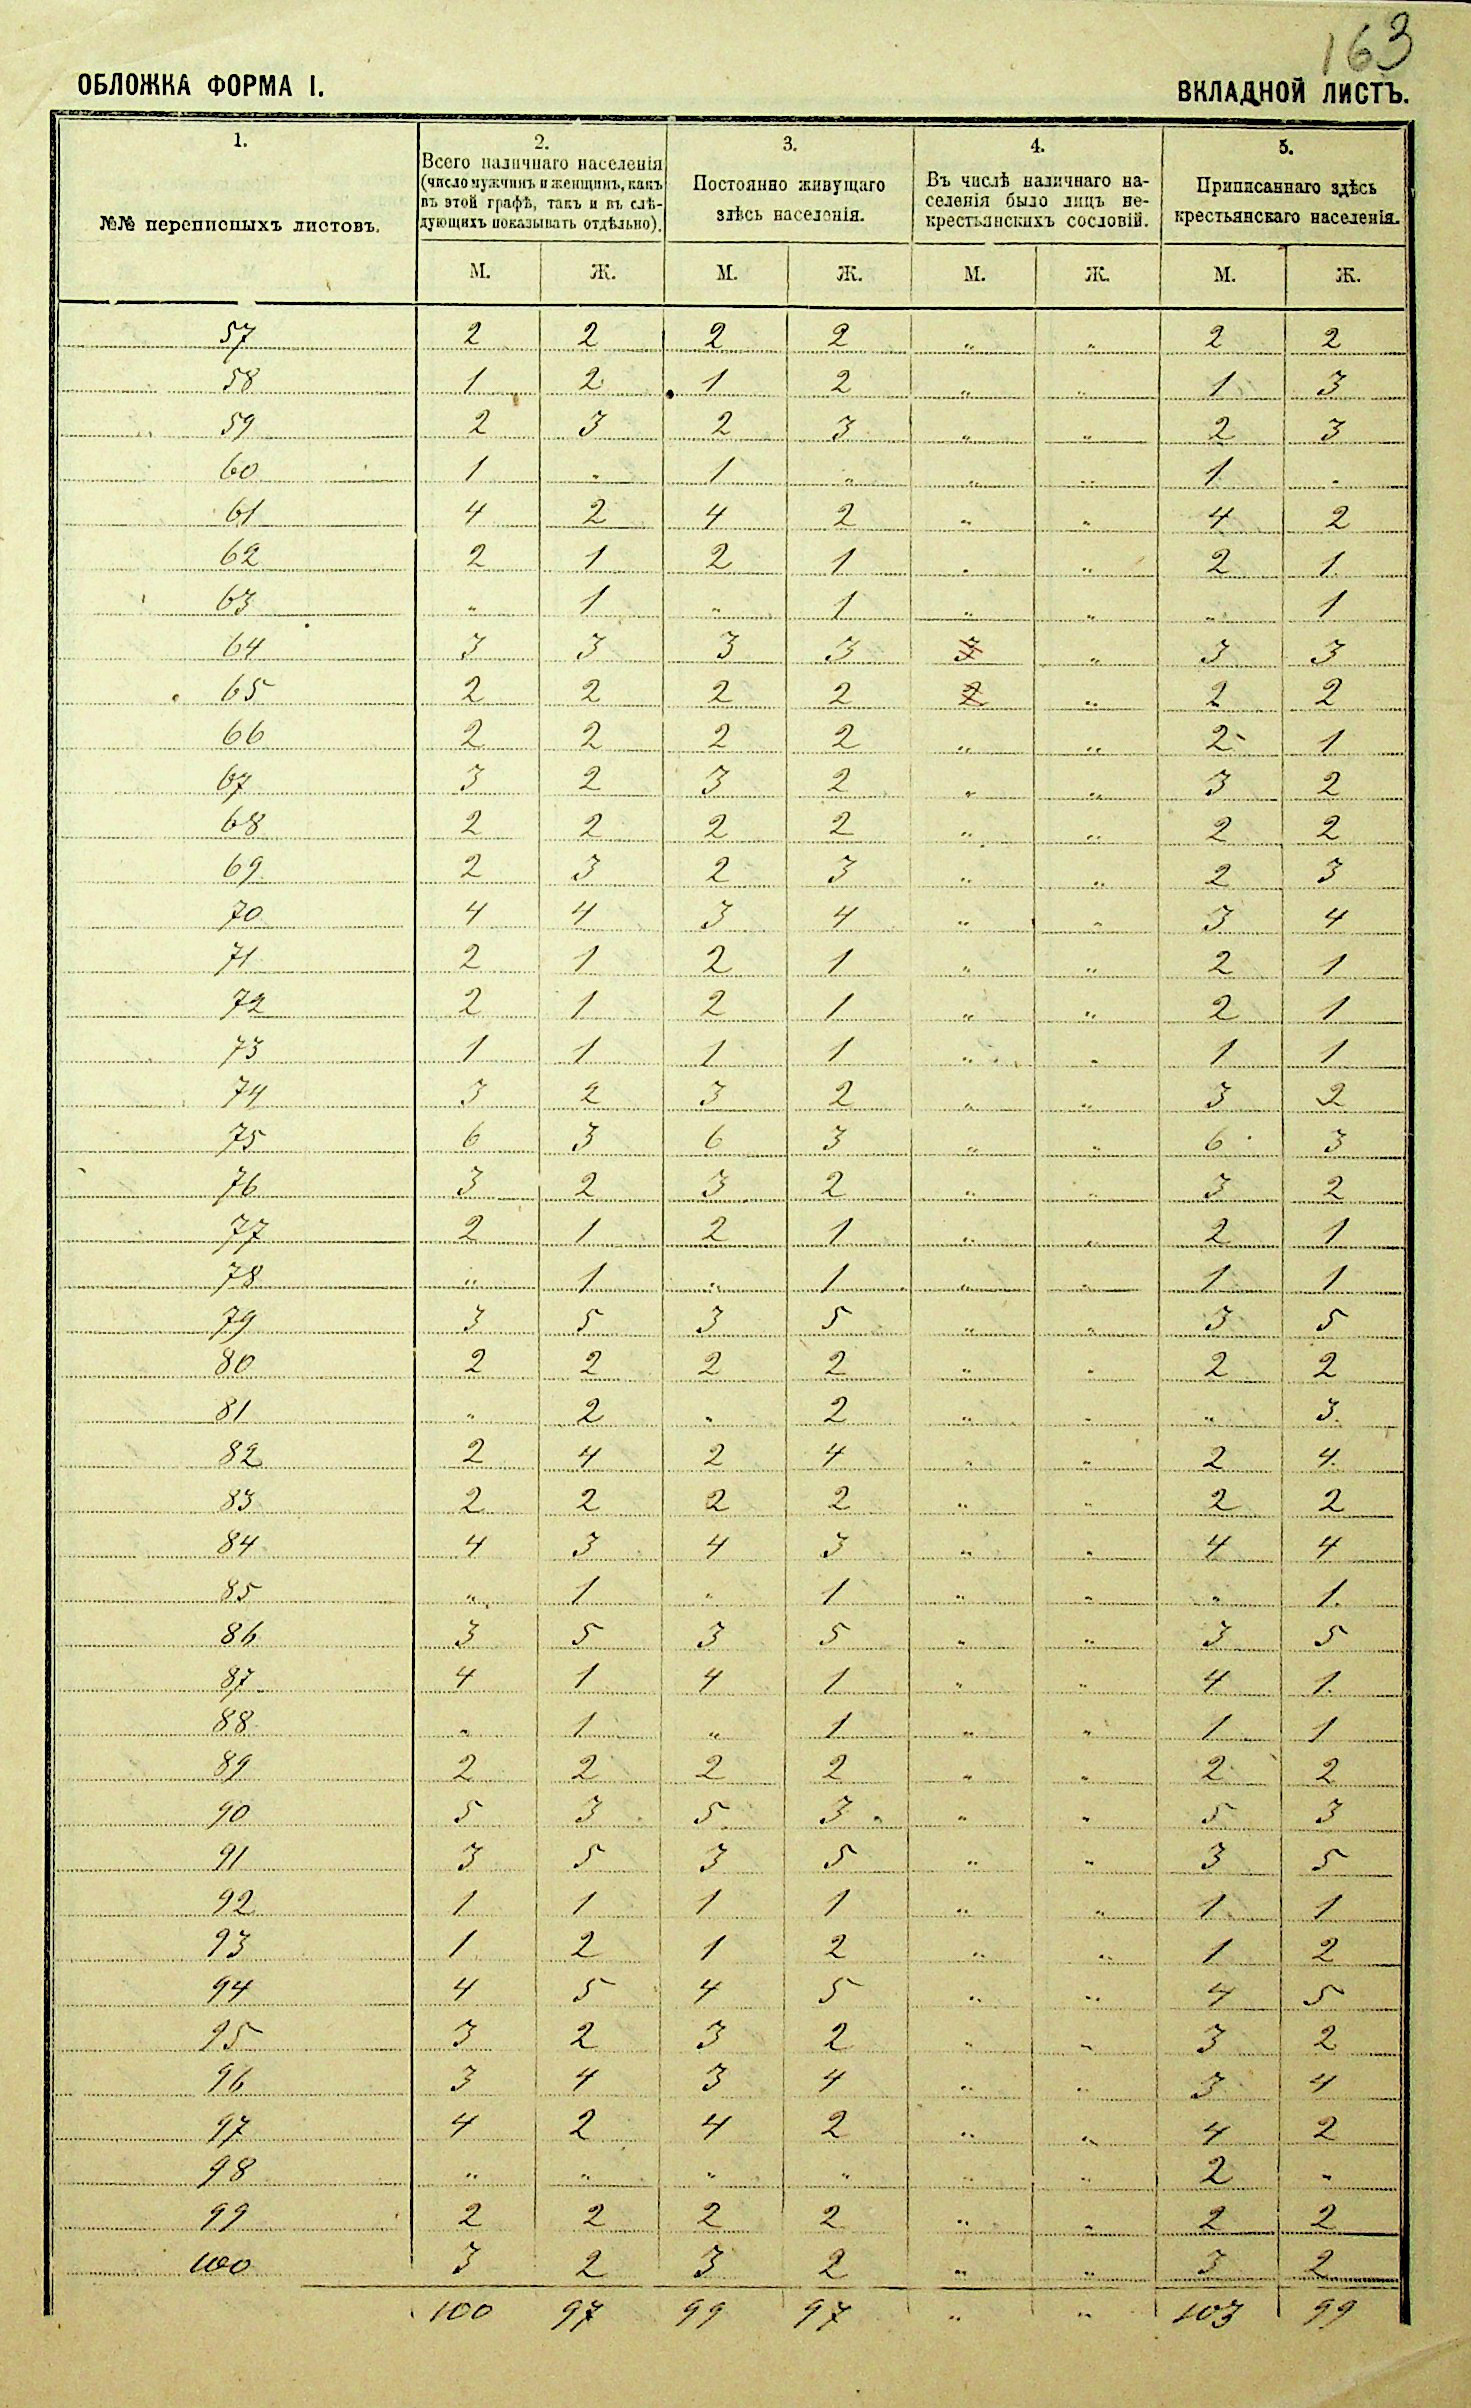 163
ОБЛОЖКА ФОРМА I.
ВКЛАДНОЙ ЛИСТЪ.
1. 2. 3. 4. 5.
№№ переписныхъ листовъ.
Всего наличнаго населенія
(число мужчинъ и женщинъ, какъ
въ этой графѣ, такъ и въ слѣ-
дующихъ показывать отдѣльно).
Постоянно живущаго
здѣсь населенія.
Въ числѣ наличнаго на-
селенія было лицъ не-
крестьянскихъ сословій.
Приписаннаго здѣсь
крестьянскаго населенія.
М. Ж. М. Ж. М. Ж. М. Ж.
57 2 2 2 2 " " 2 2
58 1 2 1 2 " " 1 3
59 2 3 2 3 " " 2 3
60 1 " 1 " " " 1 "
61 4 2 4 2 " " 4 2
62 2 1 2 1 " " 2 1
63 " 1 " 1 " " " 1
64 3 3 3 3 3 " 3 3
65 2 2 2 2 2 " 2 2
66 2 2 2 2 " " 2 1
67 3 2 3 2 " " 3 2
68 2 2 2 2 " " 2 2
69 2 3 2 3 " " 2 3
70 4 4 3 4 " " 3 4
71 2 1 2 1 " " 2 1
72 2 1 2 1 " " 2 1
73 1 1 1 1 " " 1 1
74 3 2 3 2 " " 3 2
75 6 3 6 3 " " 6 3
76 3 2 3 2 " " 3 2
77 2 1 2 1 " " 2 1
78 " 1 " 1 " " 1 1
79 3 5 3 5 " " 3 5
80 2 2 2 2 " " 2 2
81 " 2 " 2 " " " 3
82 2 4 2 4 " " 2 4
83 2 2 2 2 " " 2 2
84 4 3 4 3 " " 4 4
85 " 1 " 1 " " " 1
86 3 5 3 5 " " 3 5
87 4 1 4 1 " " 4 1
88 " 1 " 1 " " 1 1
89 2 2 2 2 " " 2 2
90 5 3 5 3 " " 5 3
91 3 5 3 5 " " 3 5
92 1 1 1 1 " " 1 1
93 1 2 1 2 " " 1 2
94 4 5 4 5 " " 4 5
95 3 2 3 2 " " 3 2
96 3 4 3 4 " " 3 4
97 4 2 4 2 " " 4 2
98 " " " " " " 2 "
99 2 2 2 2 " " 2 2
100 3 2 3 2 " " 3 2
100 97 99 97 " " 103 99